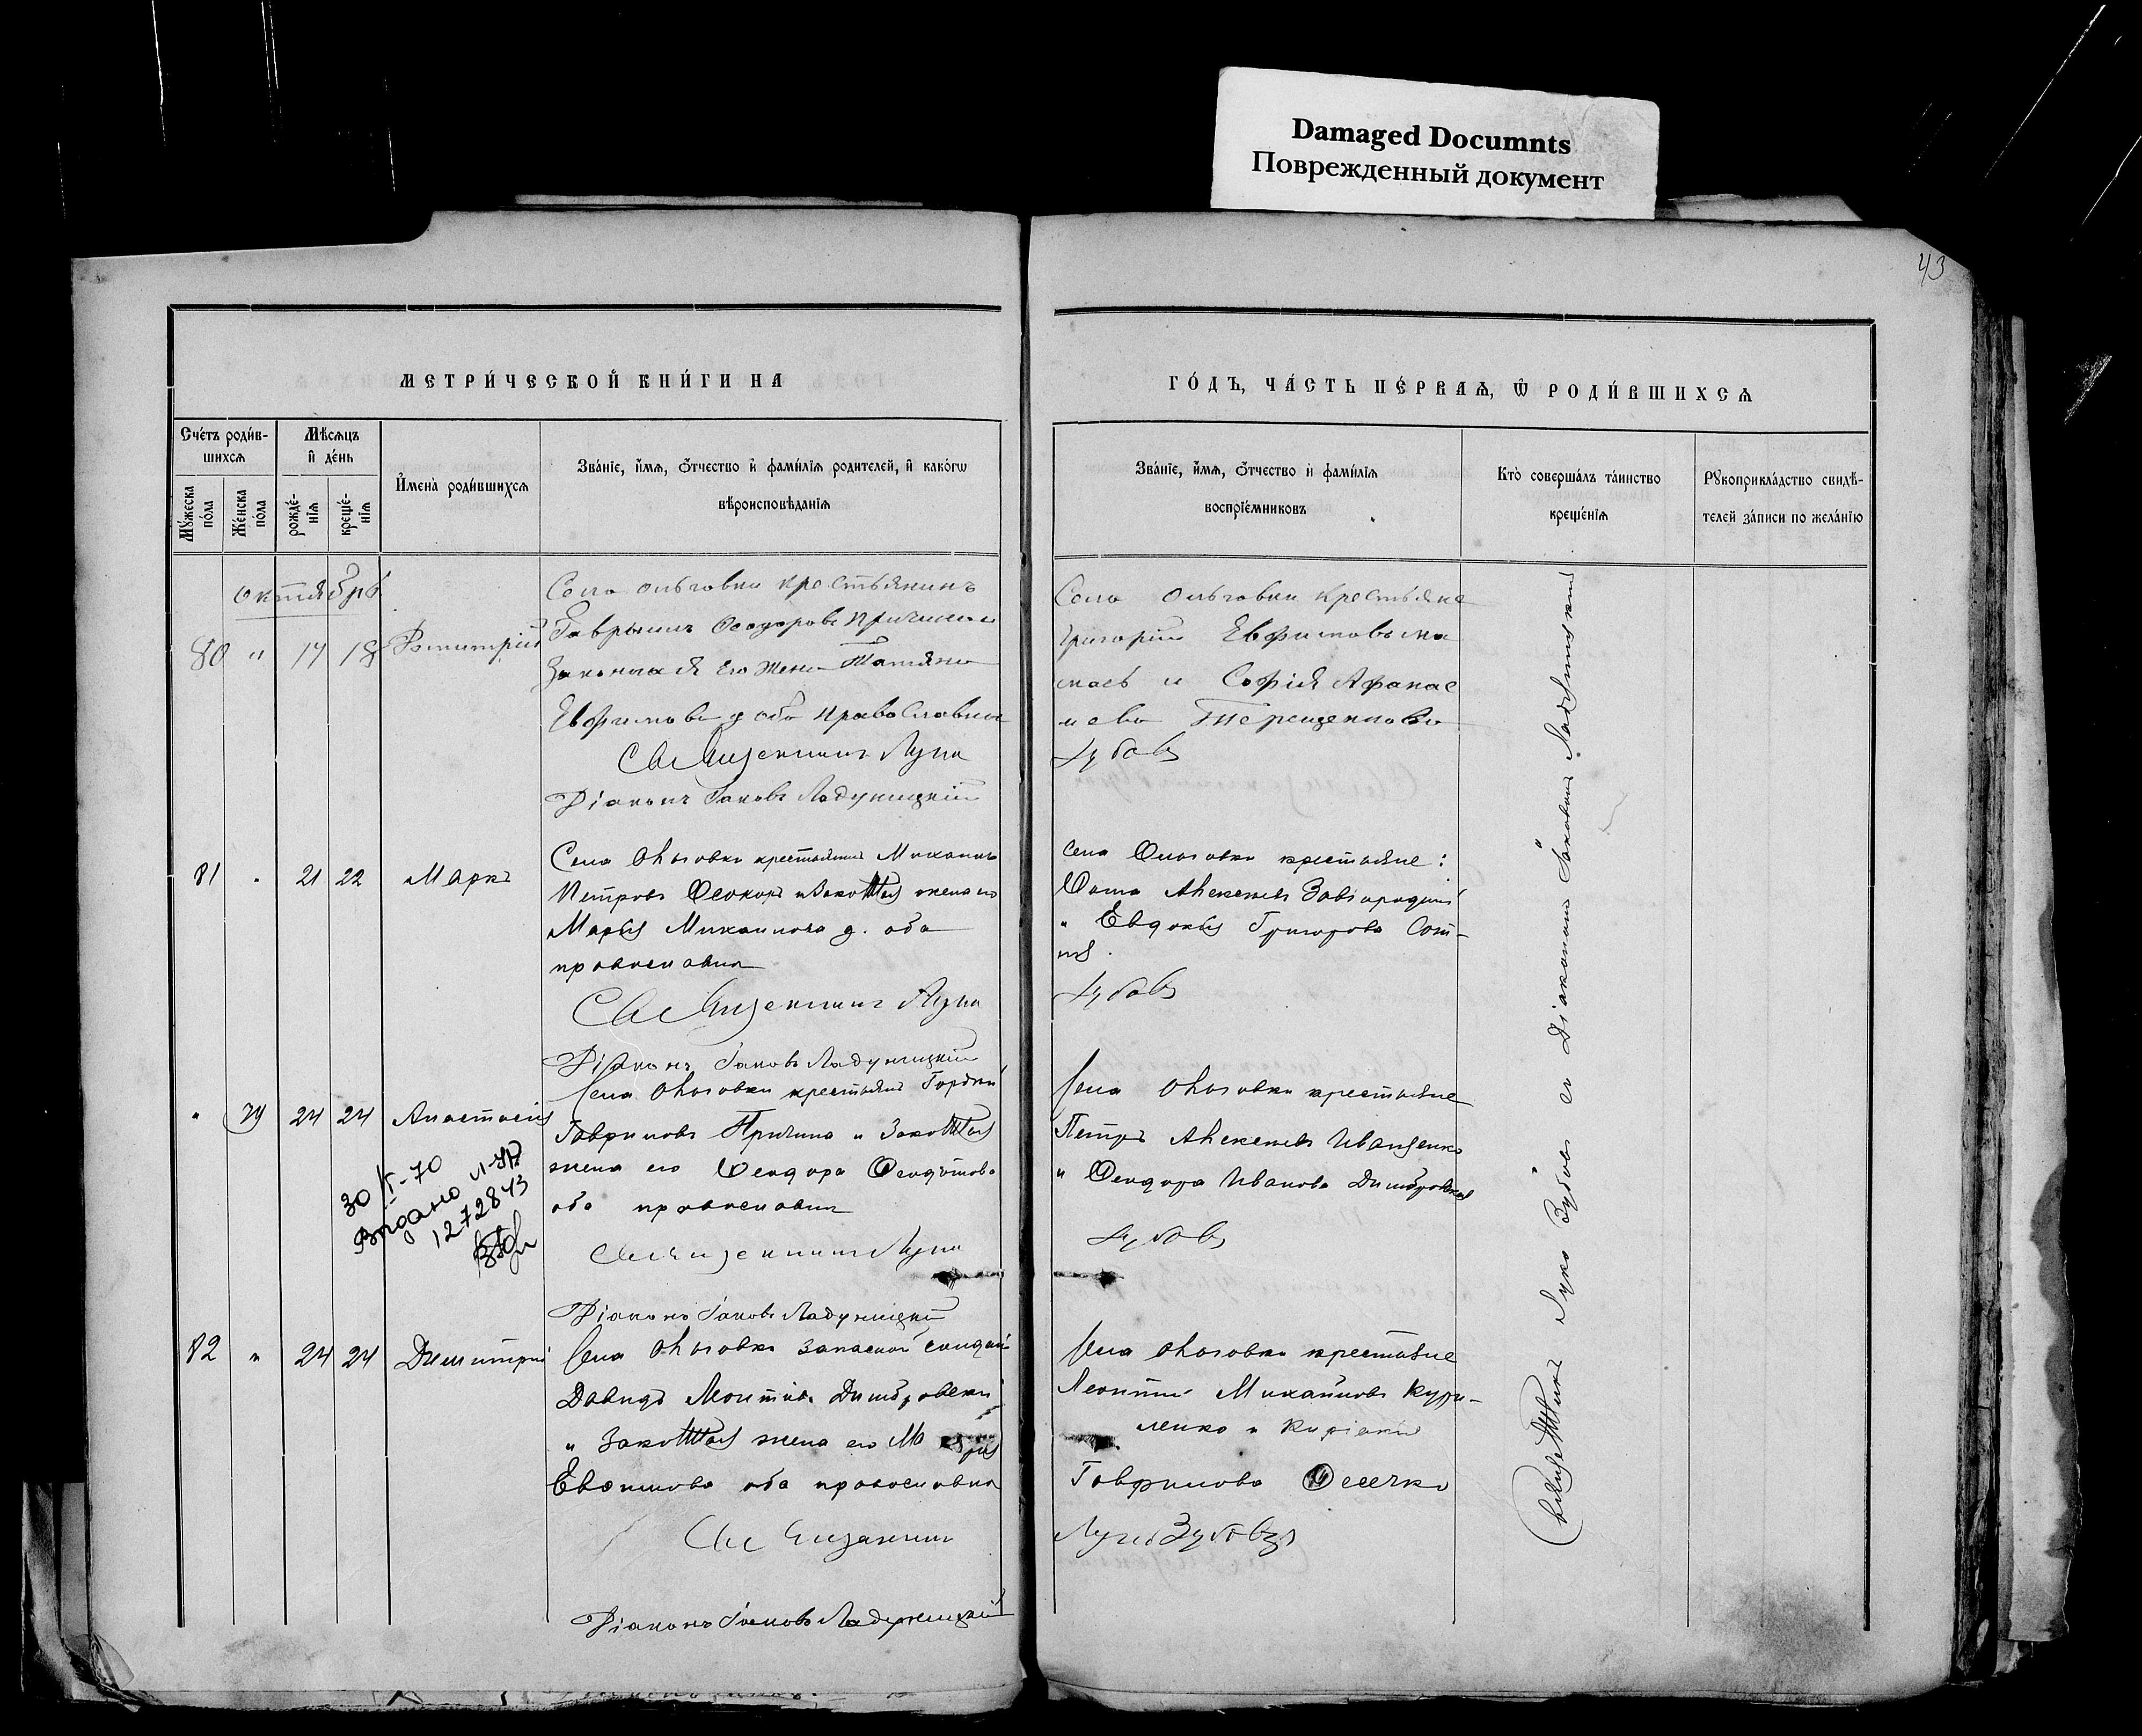 Damaged Documnts
Поврежденный документ
43
МЕТРИ́ЧЕСКОЙ КНИ́ГИ НА
ГО́ДЪ, ЧА́СТЬ ПЕ́РВАѦ, Ѽ РОДИ́ВШИХСѦ
Сче́тъ роди́в-
шихсѧ
Мꙋ́жеска по́ла
Же́нска по́ла
Мѣ́сѧцъ
и҆ де́нь
рожде́-
нїѧ
креще́-
нїѧ
И҆мена̀ роди́вшихсѧ
Зва́нїе, и҆́мѧ, ѻ҆́тчество и҆ фами́лїѧ родителей, и҆ како́гѡ
вѣроисповѣ́данїѧ
Зва́нїе, и҆́мѧ, ѻ҆́тчество и҆ фами́лїѧ
воспрїе́мниковъ
Кто̀ соверша́лъ та́инство
креще́нїѧ
Рꙋкоприкла́дство свидѣ́-
телей за́писи по жела́нїю
октября
80 " 17 18 Димитрій
Села Ольговки крестьянинъ
Гаврыилъ Феодоровъ Причина и
Законная Его жена Татіяна
Евфимова оба православны
Священникъ Лука
Діаконъ Іаковъ Ладужицкій
Села Ольговки Крестьяне
Григорій Евфимовъ
и Софія Афанас
иева Терещенкова
Зубовъ
81 " 21 22 Марк
Села Ольговки крестьянинъ Михаилъ
Петровъ и законная жена его
Марія Михаилова д. оба
православны
Священникъ Лука
Діаконъ Іаковъ Ладужицкій
Села Ольговки крестьяне:
Фома Алексеевъ Завгородній
и Евдокія Григорова
Зубовъ
" 79 24 24 Анастасія
Села Ольговки крестьянинъ Гордій
Гавриловъ Причина и законная
жена его Феодора Феодотова
оба православны
Священникъ Лука
Діаконъ Іаковъ Ладужицкій
Села Ольговки крестьяне
Петръ Алексеевъ Иващенко
и Феодора Иванова Димбровская
Зубовъ
30 -70
Видано
1272843
82 " 24 24 Димитрій
Села Ольговки запасной солдатъ
Давидъ Леонтіевъ Димбровскій
и законная жена его Марія
Евфимова оба православны
Священникъ
Діаконъ Іаковъ Ладужицкій
Села Ольговки крестьяне
Леонтій Михайловъ Кури-
ленко и Киріакія
Гаврилова
Лука Зубовъ
Священникъ Лука Зубовъ съ Діакономъ Іаковомъ Ладужицкимъ